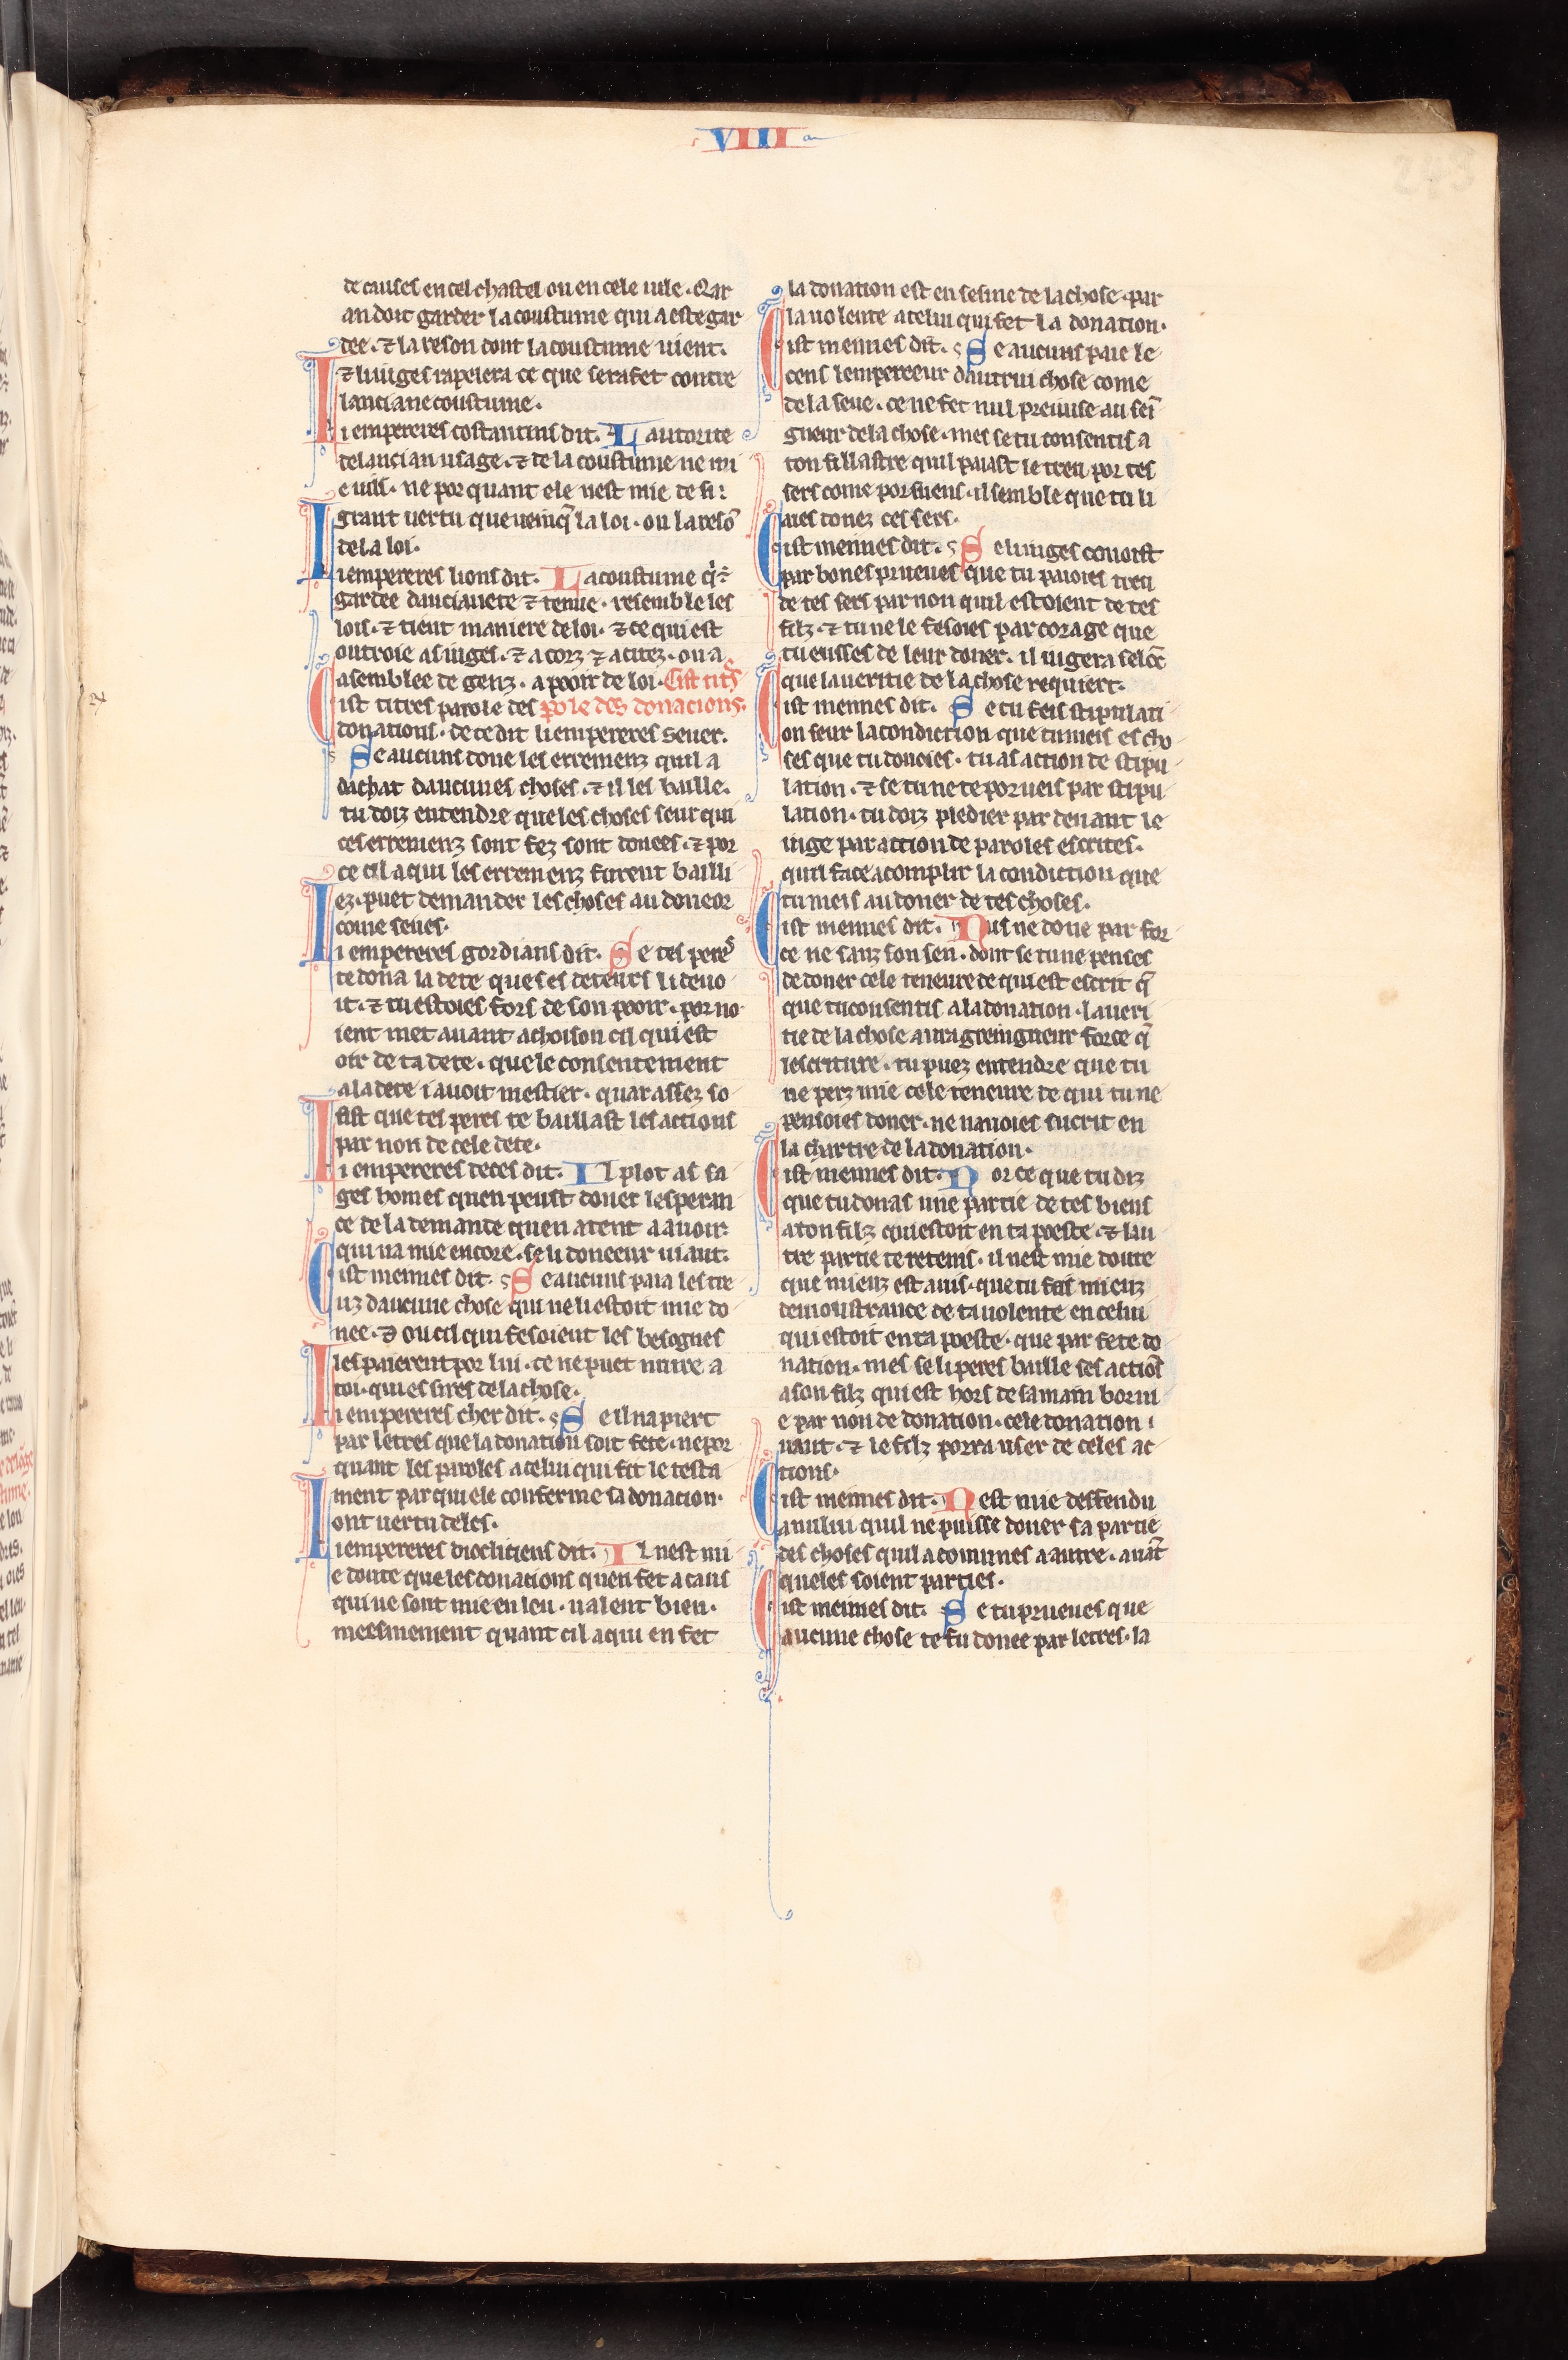 VIII
243
de causes en cel chastel ou en cele uile. Qar
an doit garder la coustume qui a este gar
dee. ⁊ la reson dont la coustume uient.
⁊ li iuges rapelera ce que sera fet contre
lanciane coustume.
Li empereres costantins dit. L autorite
de lancian usage. ⁊ de la coustume ne mi
e uill. ne por quant ele nest mie de si
grant uertu que ueinq̃ la loi. ou la resõ
de la loi.
Li empereres lions dit. L a coustume q̾ ẽ
gardee danciauete ⁊ tenue. resemble les
lois. ⁊ tient maniere de loi. ⁊ ce qui est
outroie as iuges. ⁊ a corz ⁊ a citez. ou a
asemblee de genz. a pooir de loi. Cist titr̃s
Cist titres parole des pole des donacions.
donations. de ce dit li empereres Seuer.
Se aucuns done les erremenz quil a
dachat daucunes choses. ⁊ il les baille.
tu doiz entendre que les choses seur qui
ces erremenz sont fez sont donees. ⁊ por
ce cil a qui les erremenz furent bailli
ez. puet demander les choses au doneor
come seues.
Li empereres gordians dit. S e tes peres
te dona la dete que ses deteurs li deuo
it. ⁊ tu estoies fors de son pooir. por no
ient met auant achoison cil qui est
oir de ta dete. que le consentement
a la dete i auoit mestier. quar assez so
fist que tes peres te baillast les actions
par non de cele dete.
Li empereres deces dit. I l plot as sa
ges homes quen peust doner lesperan
ce de la demande quen atent a auoir.
qui na mie encore. se li doneeur uiaut.
Cist meimes dit. S e aucuns paia les tre
uz daucune chose qui ne li estoit mie do
nee. ⁊ ou cil qui fesoient les besognes
les paierent por lui. ce ne puet nuire a
toi. qui es sires de la chose.
Li empereres cher dit. S e il napiert
par letres que la donation soit fete. ne por
quant les paroles a celui qui fet le testa
ment par qui ele conferme sa donacion.
ont uertu deles.
Li empereres diocliciens dit. I l nest mi
e doute que les donations quen fet a caus
qui ne sont mie en leu. ualent bien.
meesmement quant cil a qui en fet
la donation est en sesine de la chose. par
la uolente a celui qui fet la donation.
Cist meimes dit. S e aucuns paie le
cens lempereeur dautrui chose come
de la seue. ce ne fet nul preiuise au sei
gneur de la chose. mes se tu consentis a
ton fillastre quil paiast le treu por tes
sers come por suens. il semble que tu li
aies donez ces sers.
Cist meimes dit. S e li iuges conoist
par bones prueues que tu paioies treu
de tes sers par non quil estoient de tes
filz. ⁊ tu ne le fesoies par corage que
tu eusses de leur doner. il iugera selõc
que la ueritie de la chose requiert.
Cist meimes dit. S e tu feis stipulati
on seur la condiction que tu meis es cho
ses que tu donoies. tu as action de stipu
lation. ⁊ se tu ne te porueis par stipu
lation. tu doiz pledier par deuant le
iuge par action de paroles escrites.
quil face acomplir la condiction que
tu meis au doner de tes choses.
Cist meimes dit. N us ne done par for
ce ne sanz son sen. dont se tu ne penses
de doner cele teneure de qui est escrit q̃
que tu consentis a la donation. la ueri
tie de la chose aura greingneur force q̃
lescriture. tu puez entendre que tu
ne perz mie cele teneure de qui tu ne
pensoies doner. ne nauoies sucrit en
la chartre de la donation.
Cist meimes dit. P or ce que tu diz
que tu donas une partie de tes biens
a ton filz qui estoit en ta poeste. ⁊ lau
tre partie te retenis. il nest mie doute
que mieuz est auis. que tu feis mieuz
demoustrance de ta uolente en celui
qui estoit en ta poeste. que par fete do
nation. mes se li peres baille ses actiõs
a son filz qui est hors de sa main borni
e par non de donation. cele donation i
uaut. ⁊ le filz porra user de celes ac
tions.
Cist meimes dit. N est mie deffendu
a nului quil ne puisse doner sa partie
des choses quil a comunes a autre. auãt
queles soient parties.
Cist meimes dit. S e tu prueues que
aucune chose te fu donee par letres. la